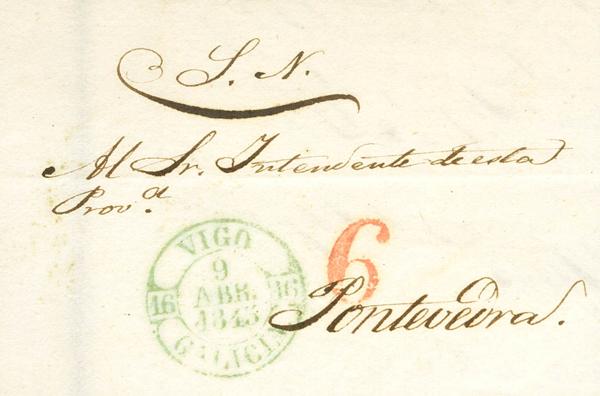 S. N.
Al Sr. Intendente de esta
Prov.ª
VIGO
9
ABR.
1845
16
16
GALICIA
6
Pontevedra.